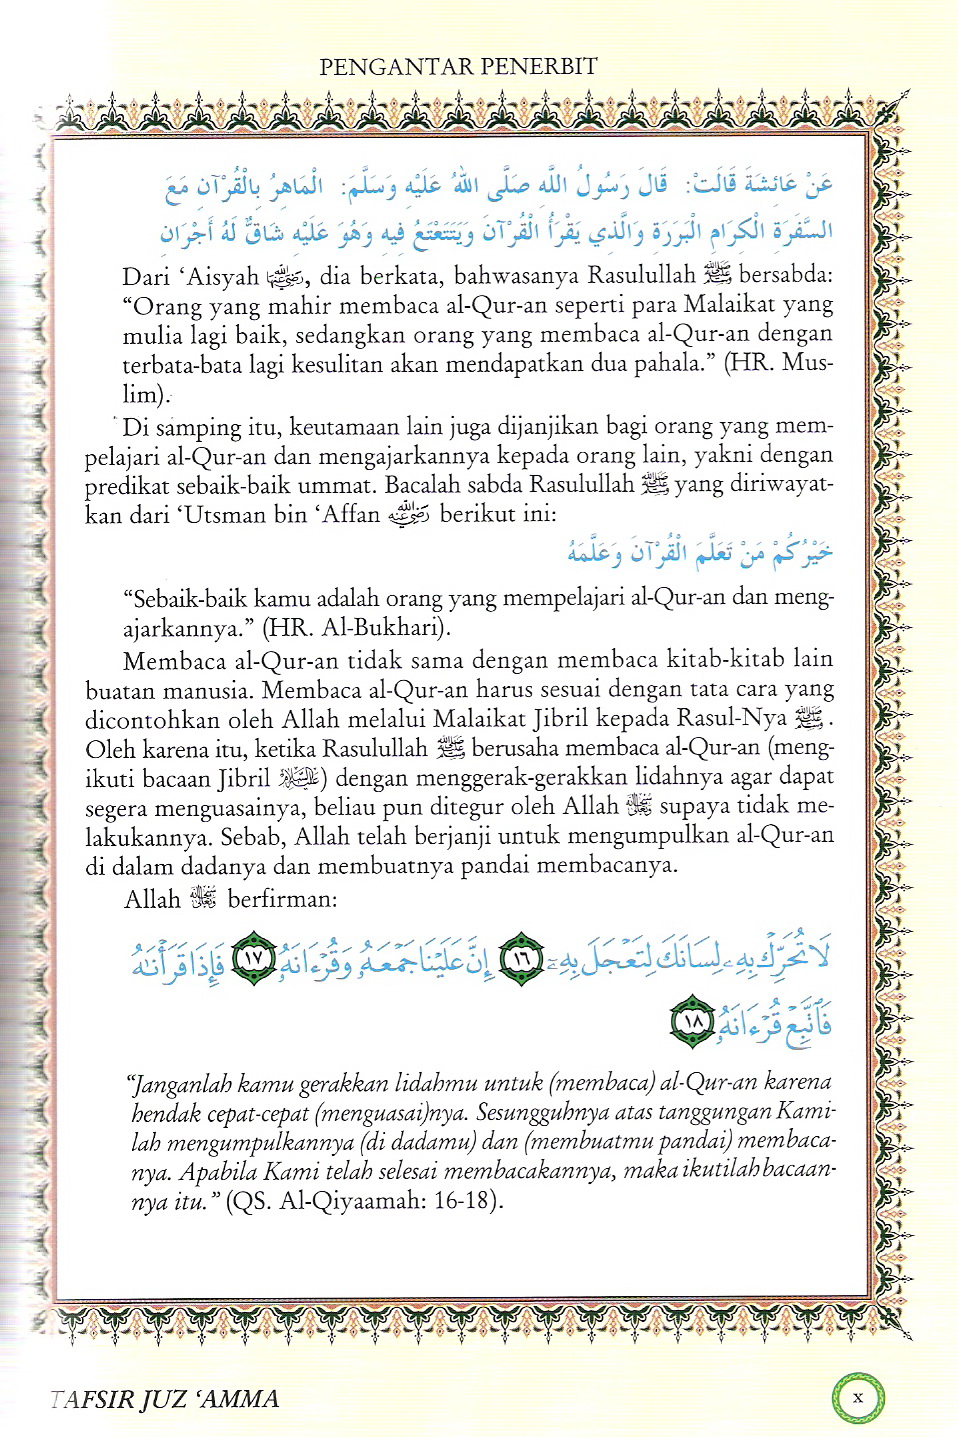 PENGANTAR PENERBIT
عَنْ عَائِشَةَ قَالَتْ: قَالَ رَسُولُ اللَّهِ صَلَّى اللهُ عَلَيْهِ وَسَلَّمَ: الْمَاهِرُ بِالْقُرْآنِ مَعَ
السَّفَرَةِ الْكِرَامِ الْبَرَرَةِ وَالَّذِي يَقْرَأُ الْقُرْآنَ وَيَتَتَعْتَعُ فِيهِ وَهُوَ عَلَيْهِ شَاقٌّ لَهُ أَجْرَانِ
Dari ‘Aisyah رضي الله عنها, dia berkata, bahwasanya Rasulullah ﷺ bersabda:
“Orang yang mahir membaca al-Qur-an seperti para Malaikat yang
mulia lagi baik, sedangkan orang yang membaca al-Qur-an dengan
terbata-bata lagi kesulitan akan mendapatkan dua pahala.” (HR. Mus-
lim).
Di samping itu, keutamaan lain juga dijanjikan bagi orang yang mem-
pelajari al-Qur-an dan mengajarkannya kepada orang lain, yakni dengan
predikat sebaik-baik ummat. Bacalah sabda Rasulullah ﷺ yang diriwayat-
kan dari ‘Utsman bin ‘Affan رضي الله عنه berikut ini:
خَيْرُكُمْ مَنْ تَعَلَّمَ الْقُرْآنَ وَعَلَّمَهُ
“Sebaik-baik kamu adalah orang yang mempelajari al-Qur-an dan meng-
ajarkannya.” (HR. Al-Bukhari).
Membaca al-Qur-an tidak sama dengan membaca kitab-kitab lain
buatan manusia. Membaca al-Qur-an harus sesuai dengan tata cara yang
dicontohkan oleh Allah melalui Malaikat Jibril kepada Rasul-Nya ﷺ .
Oleh karena itu, ketika Rasulullah ﷺ berusaha membaca al-Qur-an (meng-
ikuti bacaan Jibril عليه السلام) dengan menggerak-gerakkan lidahnya agar dapat
segera menguasainya, beliau pun ditegur oleh Allah سبحانه وتعالى supaya tidak me-
lakukannya. Sebab, Allah telah berjanji untuk mengumpulkan al-Qur-an
di dalam dadanya dan membuatnya pandai membacanya.
Allah سبحانه وتعالى berfirman:
لَا تُحَرِّكْ بِهِۦ لِسَانَكَ لِتَعْجَلَ بِهِۦٓ ١٦ إِنَّ عَلَيْنَا جَمْعَهُۥ وَقُرْءَانَهُۥ ١٧ فَإِذَا قَرَأْنَٰهُ
فَٱتَّبِعْ قُرْءَانَهُۥ ١٨
“Janganlah kamu gerakkan lidahmu untuk (membaca) al-Qur-an karena
hendak cepat-cepat (menguasai)nya. Sesungguhnya atas tanggungan Kami-
lah mengumpulkannya (di dadamu) dan (membuatmu pandai) membaca-
nya. Apabila Kami telah selesai membacakannya, maka ikutilah bacaan-
nya itu.” (QS. Al-Qiyaamah: 16-18).
TAFSIR JUZ ‘AMMA
x